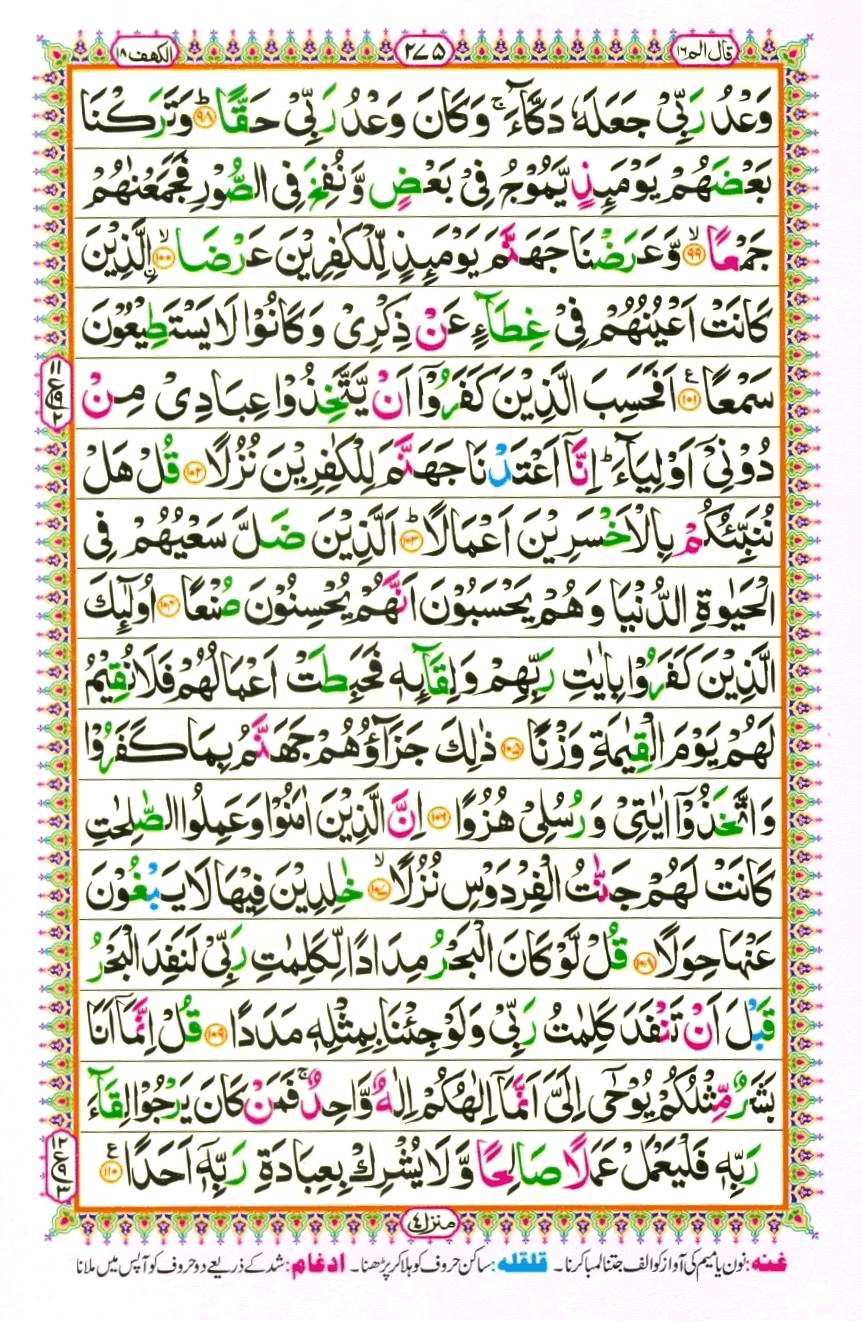 قال الم ١٦
٢٧٥
الكهف ١٨
وَعْدُ رَبِّیْ جَعَلَهٗ دَكَّآءَ ۚ وَكَانَ وَعْدُ رَبِّیْ حَقًّا ؕ ٩٨ وَتَرَكْنَا
بَعْضَهُمْ یَوْمَىِٕذٍ یَّمُوْجُ فِیْ بَعْضٍ وَّنُفِخَ فِی الصُّوْرِ فَجَمَعْنٰهُمْ
جَمْعًا ۙ ٩٩ وَّعَرَضْنَا جَهَنَّمَ یَوْمَىِٕذٍ لِّلْكٰفِرِیْنَ عَرْضَا ۙ ١٠٠ ۨالَّذِیْنَ
كَانَتْ اَعْیُنُهُمْ فِیْ غِطَآءٍ عَنْ ذِكْرِیْ وَكَانُوْا لَا یَسْتَطِیْعُوْنَ
سَمْعًا ١٠١ ع اَفَحَسِبَ الَّذِیْنَ كَفَرُوْۤا اَنْ یَّتَّخِذُوْا عِبَادِیْ مِنْ
دُوْنِیْۤ اَوْلِیَآءَ ؕ اِنَّاۤ اَعْتَدْنَا جَهَنَّمَ لِلْكٰفِرِیْنَ نُزُلًا ١٠٢ قُلْ هَلْ
نُنَبِّئُكُمْ بِالْاَخْسَرِیْنَ اَعْمَالًا ؕ ١٠٣ اَلَّذِیْنَ ضَلَّ سَعْیُهُمْ فِی
الْحَیٰوةِ الدُّنْیَا وَهُمْ یَحْسَبُوْنَ اَنَّهُمْ یُحْسِنُوْنَ صُنْعًا ١٠٤ اُولٰٓىِٕكَ
الَّذِیْنَ كَفَرُوْا بِاٰیٰتِ رَبِّهِمْ وَلِقَآىِٕهٖ فَحَبِطَتْ اَعْمَالُهُمْ فَلَا نُقِیْمُ
لَهُمْ یَوْمَ الْقِیٰمَةِ وَزْنًا ١٠٥ ذٰلِكَ جَزَآؤُهُمْ جَهَنَّمُ بِمَا كَفَرُوْا
وَاتَّخَذُوْۤا اٰیٰتِیْ وَرُسُلِیْ هُزُوًا ١٠٦ اِنَّ الَّذِیْنَ اٰمَنُوْا وَعَمِلُوا الصّٰلِحٰتِ
كَانَتْ لَهُمْ جَنّٰتُ الْفِرْدَوْسِ نُزُلًا ۙ ١٠٧ خٰلِدِیْنَ فِیْهَا لَا یَبْغُوْنَ
عَنْهَا حِوَلًا ١٠٨ قُلْ لَّوْ كَانَ الْبَحْرُ مِدَادًا لِّكَلِمٰتِ رَبِّیْ لَنَفِدَ الْبَحْرُ
قَبْلَ اَنْ تَنْفَدَ كَلِمٰتُ رَبِّیْ وَلَوْ جِئْنَا بِمِثْلِهٖ مَدَدًا ١٠٩ قُلْ اِنَّمَاۤ اَنَا
بَشَرٌ مِّثْلُكُمْ یُوْحٰۤی اِلَیَّ اَنَّمَاۤ اِلٰهُكُمْ اِلٰهٌ وَّاحِدٌ ۚ فَمَنْ كَانَ یَرْجُوْا لِقَآءَ
رَبِّهٖ فَلْیَعْمَلْ عَمَلًا صَالِحًا وَّلَا یُشْرِكْ بِعِبَادَةِ رَبِّهٖۤ اَحَدًا ١١٠ ع
١١
ع ٩
٢
١٢
ع ٩
٣
منزل ٤
غنه : نون یا میم کی آواز کو الف جتنا لمبا کرنا ۔ قلقله : ساکن حروف کو ہلا کر پڑھنا ۔ ادغام : شد کے ذریعے دو حروف کو آپس میں ملانا